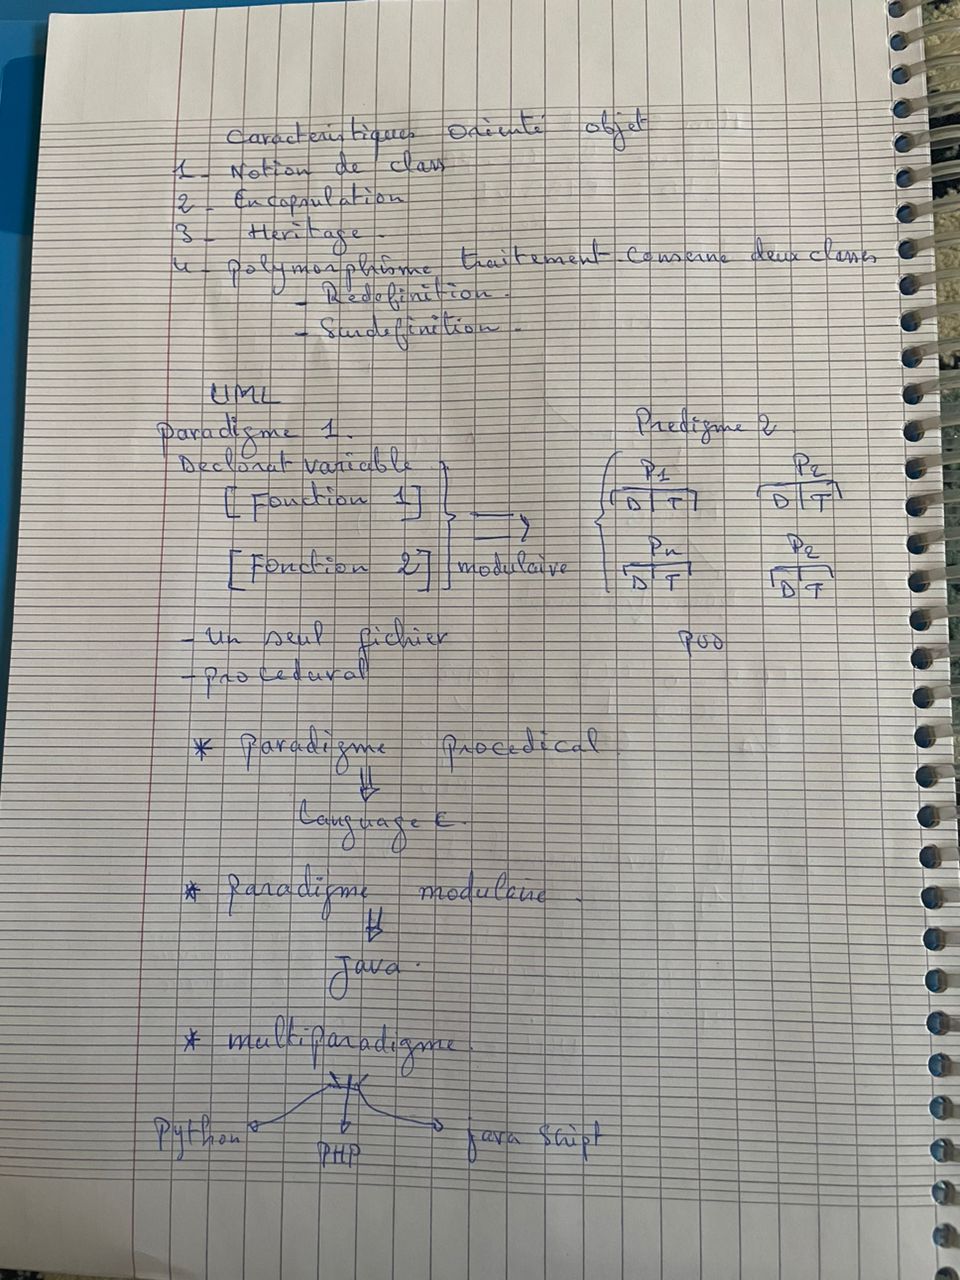 Caracteristiques orienté objet
1 - Notion de class
2 - Encapsulation
3 - Heritage -
4 - polymorphisme traitement-conserne deux classes
- Redefinition.
- Surdefinition -
UML
paradigme 1.
Declarat variable
[Fonction 1]
[Fonction 2]
modulaire
Predigme 2.
P1 P2
D T D T
Pn P2
D T D T
- un seul fichier
POO
- procedural
* paradigme procedical.
Language C.
* paradigme modulaire.
Java.
* multiparadigme.
Python
PHP
java Script